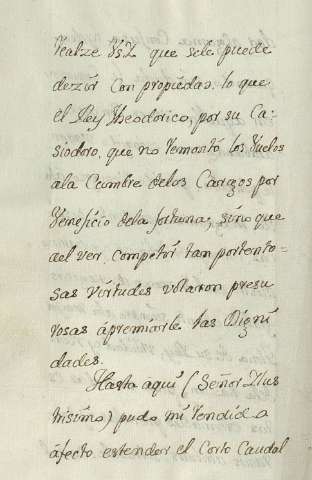 realze VSI que sele puede
dezir con propiedad, lo que
el Rey Theodorico, por su Ca-
siodoro, que no remontó los vuelos
ala Cumbre delos Cargos por
veneficio dela fortuna; sino que
ael ver competir tan portento-
sas virtudes volaron presu
rosas àpremiarle las Digni
dades.
Hasta aqui (Señor Ilus
trisimo) pudo mi rendido
áfecto estender el Corto Caudal